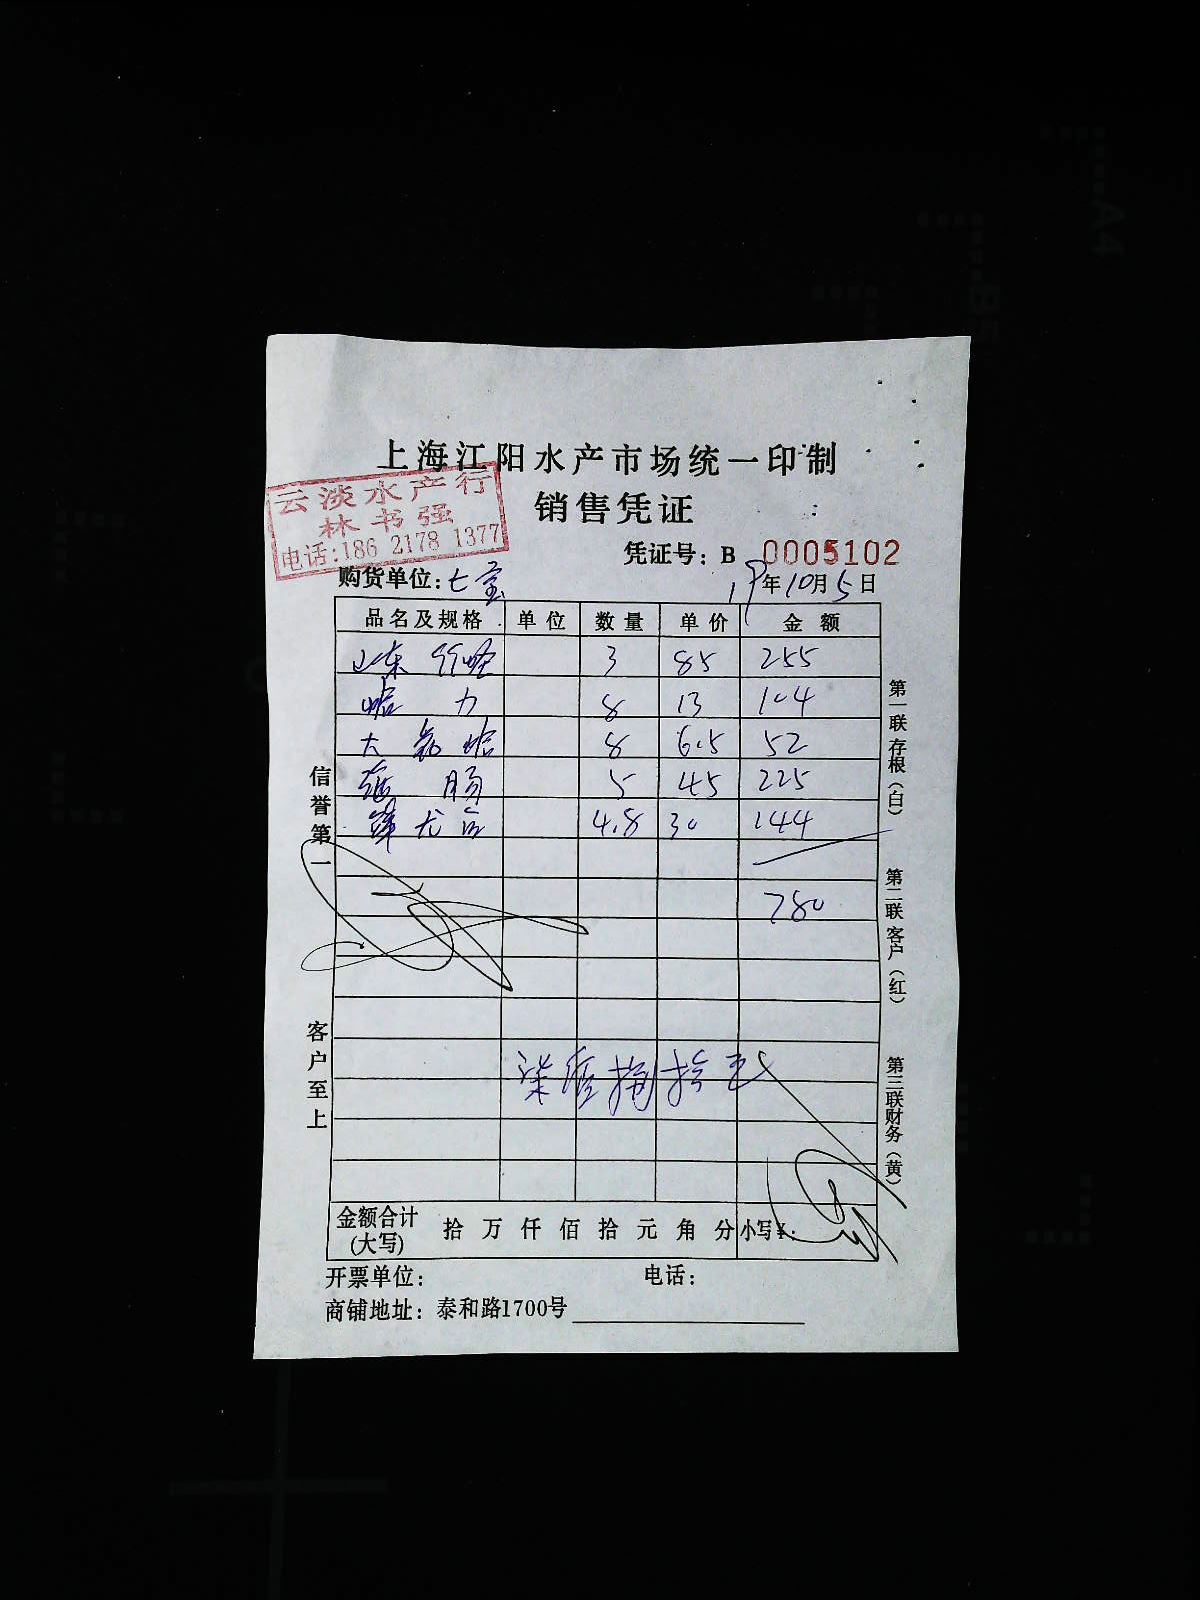 上海江阳水产市场统一印制
销售凭证
云淡水产行
林书强
电话:186 2178 1377
凭证号: B 0005102
购货单位:七宝
19年10月5日
品名及规格 单位 数量 单价 金额
山东竹蛏 3 85 255
蛤力 8 13 104
大 蛤 8 6.5 52
海肠 5 45 225
4.8 30 144
780
柒佰捌拾元
金额合计(大写) 拾 万 仟 佰 拾 元 角 分 小写¥:
开票单位: 电话:
商铺地址: 泰和路1700号
信誉第一
客户至上
第一联 存根(白)
第二联 客户(红)
第三联 财务(黄)
A4